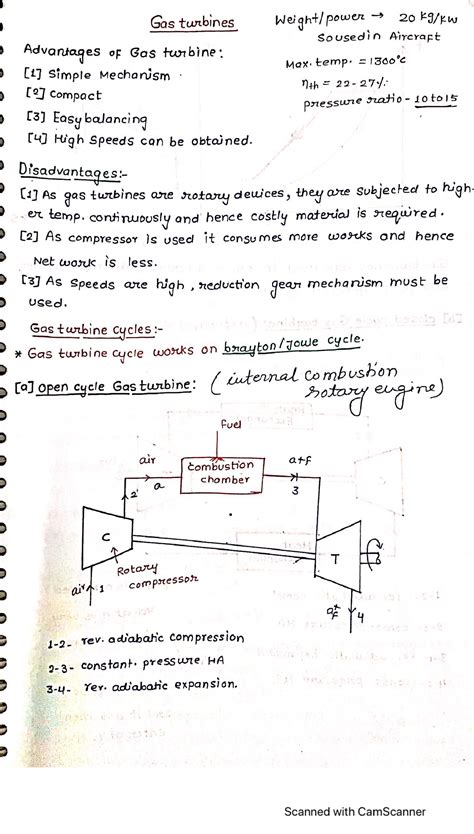 Gas turbines
Weight/power → 20 kg/kw
So used in Aircraft
Max. temp. = 1300°C
ηth = 22-27%
pressure ratio - 10 to 15
Advantages of Gas turbine:
[1] Simple Mechanism.
[2] Compact
[3] Easy balancing
[4] High Speeds can be obtained.
Disadvantages:-
[1] As gas turbines are rotary devices, they are subjected to high-
er temp. continuously and hence costly material is required.
[2] As compressor is used it consumes more works and hence
Net work is less.
[3] As speeds are high, reduction gear mechanism must be
used.
Gas turbine cycles:-
* Gas turbine cycle works on brayton/Jowe cycle.
[a] Open cycle Gas turbine: (internal combustion
rotary engine)
fuel
air
combustion
chamber
a+f
2
a
3
C
T
Rotary
compressor
air 1
a+f
4
1-2- rev. adiabatic compression
2-3- constant. pressure HA
3-4- rev. adiabatic expansion.
Scanned with CamScanner